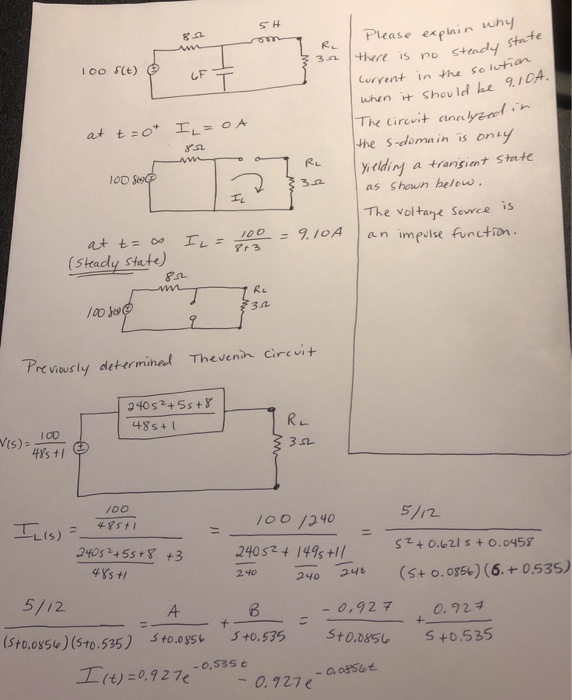 8Ω
5 H
100 δ(t)
6F
RL
3Ω
Please explain why
there is no steady state
current in the solution
when it should be 9.10A.
The circuit analyzed in
the s-domain is only
yielding a transient state
as shown below.
The voltage source is
an impulse function.
at t = 0⁺ IL = 0 A
8Ω
100 δ(t)
IL
RL
3Ω
at t = ∞ IL = 100/(8+3) = 9.10A
(Steady state)
8Ω
100 δ(t)
RL
3Ω
Previously determined Thevenin circuit
V(s) = 100/(48s+1)
(240s²+5s+8)/(48s+1)
RL
3Ω
IL(s) = (100/(48s+1))/((240s²+5s+8)/(48s+1) +3) = (100/240)/(240s²/240 + 149s/240 + 11/240) = (5/12)/(s² + 0.621s + 0.0458)
(s+0.0856)(s.+0.535)
(5/12)/((s+0.0856)(s+0.535)) = A/(s+0.0856) + B/(s+0.535) = -0.927/(s+0.0856) + 0.927/(s+0.535)
I(t) = 0.927e^(-0.535t) - 0.927e^(-0.0856t)